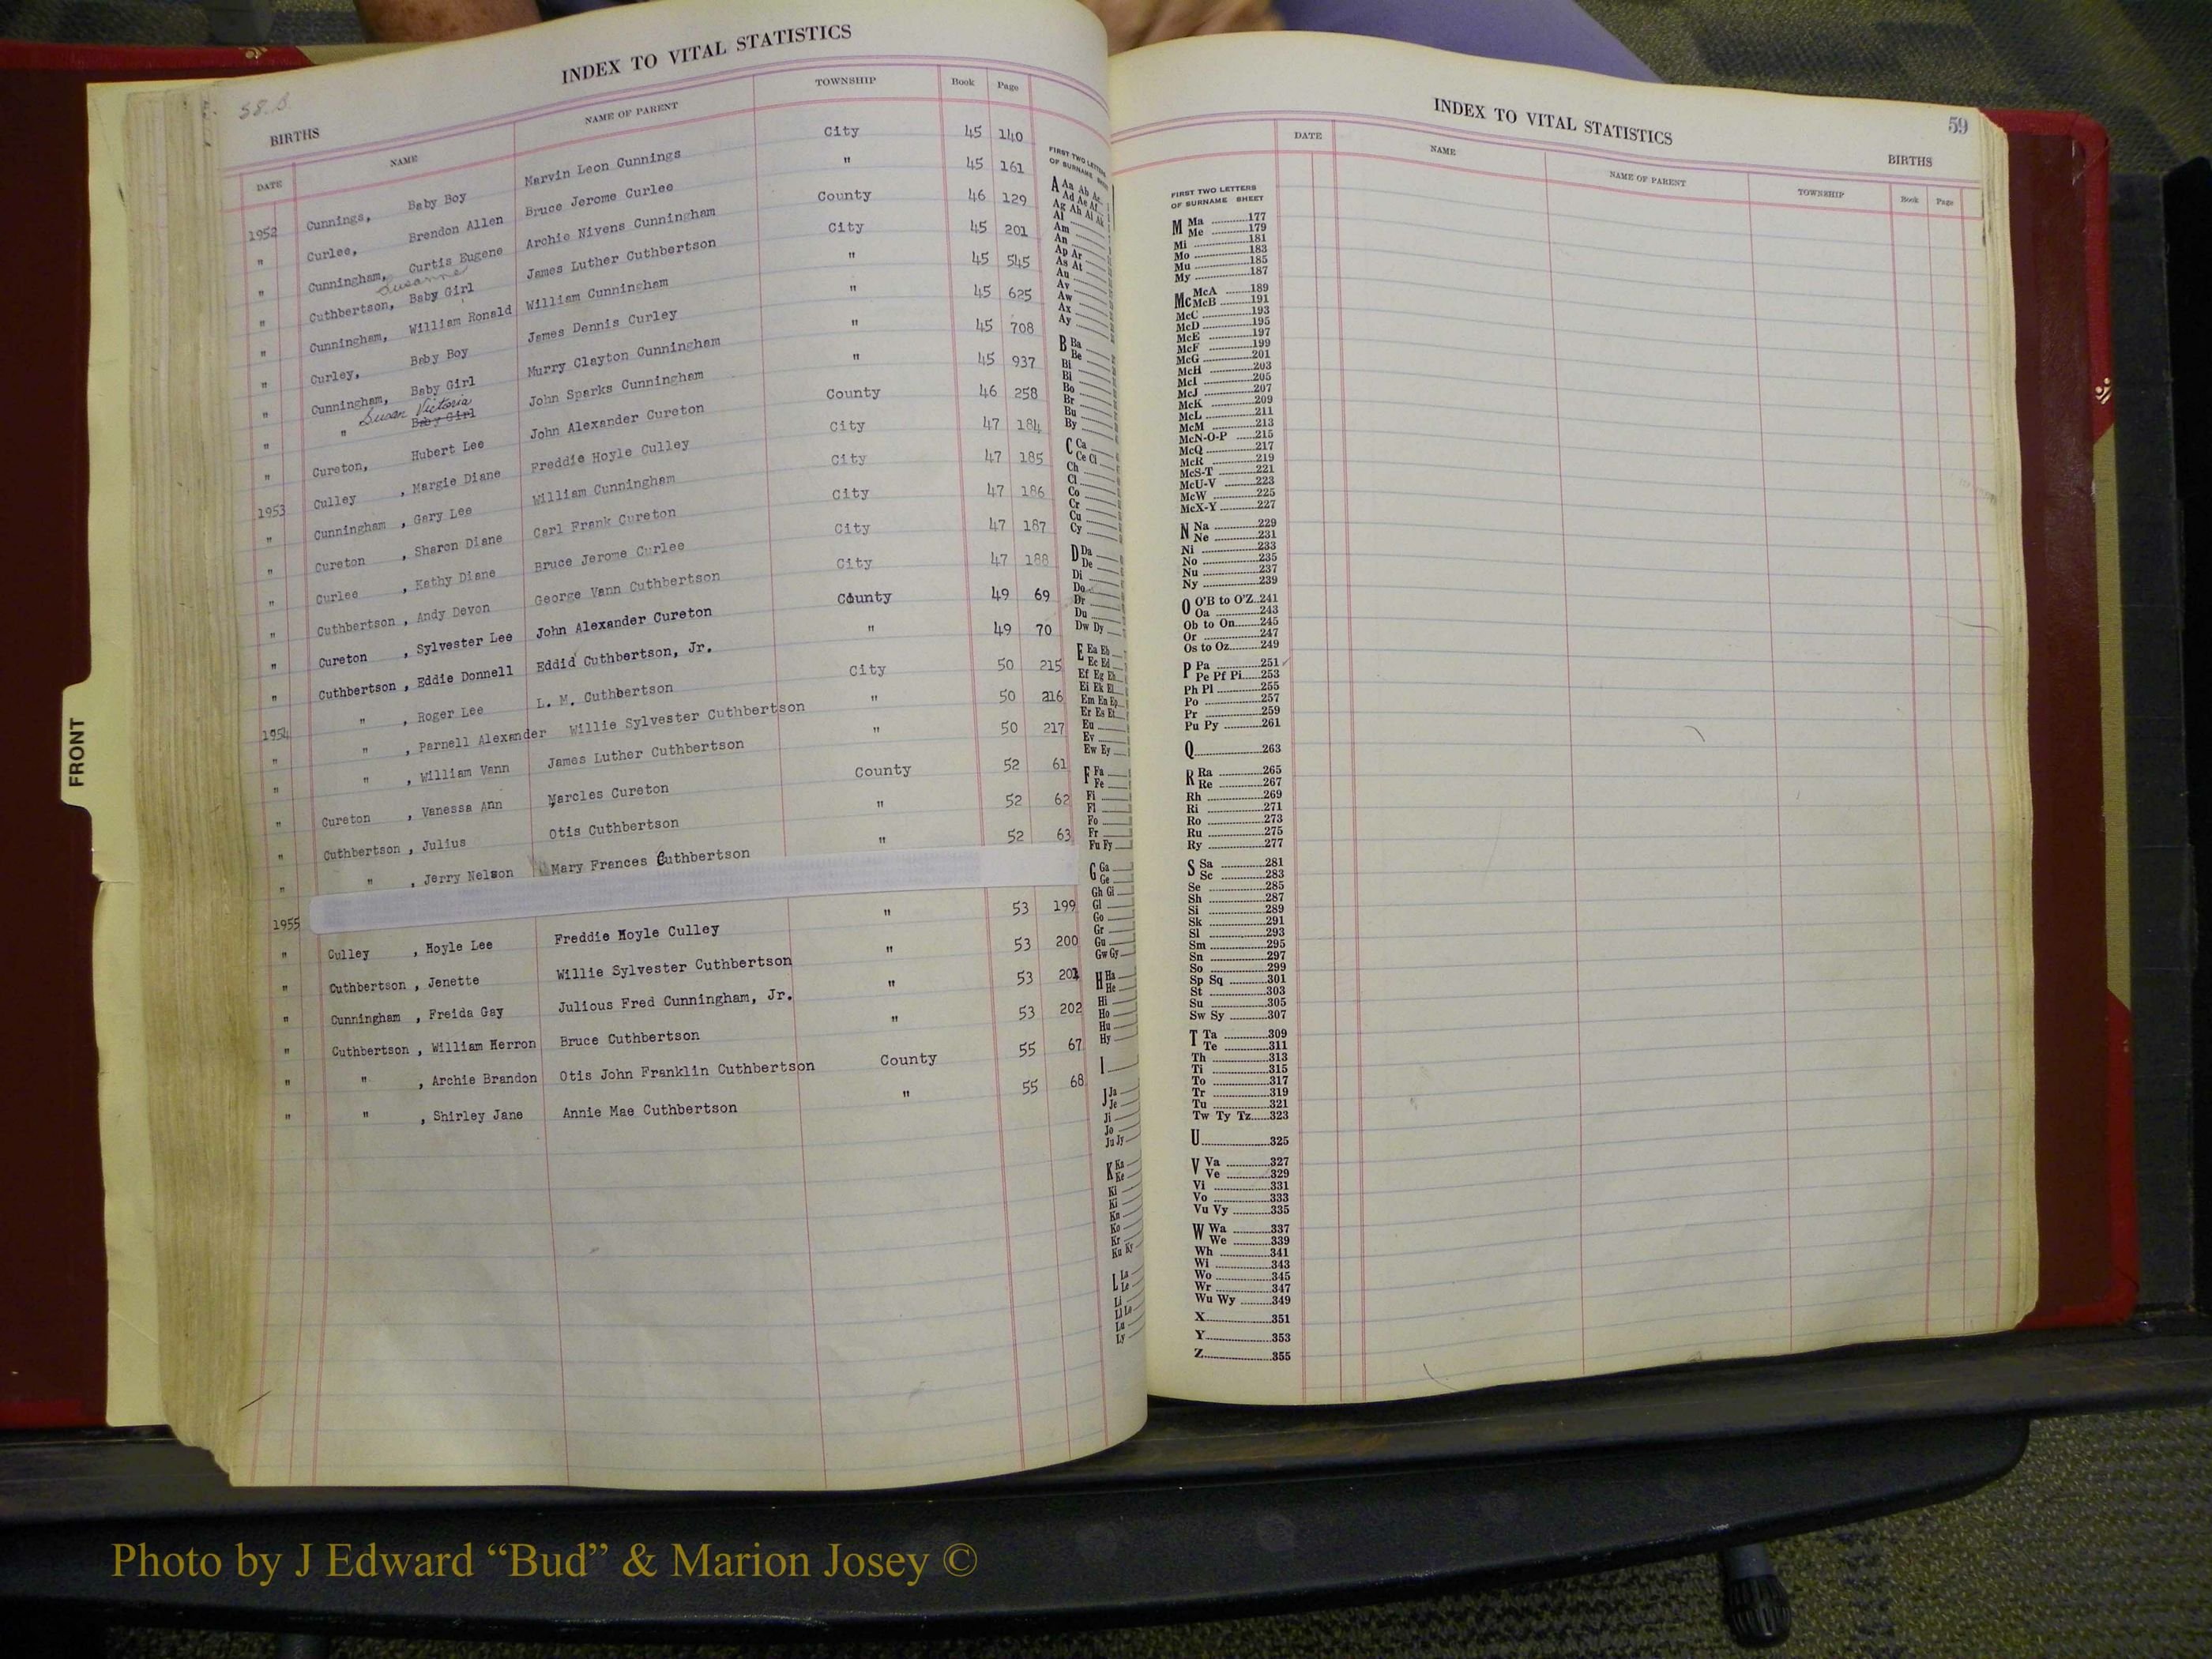 58.B.
INDEX TO VITAL STATISTICS
BIRTHS
DATE NAME NAME OF PARENT TOWNSHIP Book Page
1952 Cunnings, Baby Boy Marvin Leon Cunnings City 45 140
" Curlee, Brendon Allen Bruce Jerome Curlee " 45 161
" Cunningham, Curtis Eugene Archie Nivens Cunningham County 46 129
Susanne
" Cuthbertson, Baby Girl James Luther Cuthbertson City 45 201
" Cunningham, William Ronald William Cunningham " 45 545
" Curley, Baby Boy James Dennis Curley " 45 625
" Cunningham, Baby Girl Murry Clayton Cunningham " 45 708
Susan Victoria
" " Baby Girl John Sparks Cunningham " 45 937
" Cureton, Hubert Lee John Alexander Cureton County 46 258
1953 Culley , Margie Diane Freddie Hoyle Culley City 47 184
" Cunningham , Gary Lee William Cunningham City 47 185
" Cureton , Sharon Diane Carl Frank Cureton City 47 186
" Curlee , Kathy Diane Bruce Jerome Curlee City 47 187
" Cuthbertson , Andy Devon George Vann Cuthbertson City 47 188
" Cureton , Sylvester Lee John Alexander Cureton County 49 69
" Cuthbertson , Eddie Donnell Eddid Cuthbertson, Jr. " 49 70
1954 " , Roger Lee L. M. Cuthbertson City 50 215
" " , Parnell Alexander Willie Sylvester Cuthbertson " 50 216
" " , William Vann James Luther Cuthbertson " 50 217
" Cureton , Vanessa Ann Marcles Cureton County 52 61
" Cuthbertson , Julius Otis Cuthbertson " 52 62
" " , Jerry Nelson Mary Frances Cuthbertson " 52 63
1955
" Culley , Hoyle Lee Freddie Hoyle Culley " 53 199
" Cuthbertson , Jenette Willie Sylvester Cuthbertson " 53 200
" Cunningham , Freida Gay Julious Fred Cunningham, Jr. " 53 201
" Cuthbertson , William Herron Bruce Cuthbertson " 53 202
" " , Archie Brandon Otis John Franklin Cuthbertson County 55 67
" " , Shirley Jane Annie Mae Cuthbertson " 55 68
FIRST TWO LETTERS
OF SURNAME
A Aa Ab Ac
Ad Ae Af
Ag Ah Ai Ak
Al
Am
An
Ap Ar
As At
Au
Av
Aw
Ax
Ay
B Ba
Be
Bi
Bl
Bo
Br
Bu
By
C Ca
Ce Ci
Ch
Cl
Co
Cr
Cu
Cy
D Da
De
Di
Do
Dr
Du
Dw Dy
E Ea Eb
Ec Ed
Ef Eg Eh
Ei Ek El
Em En Ep
Er Es Et
Eu
Ev
Ew Ey
F Fa
Fe
Fi
Fl
Fo
Fr
Fu Fy
G Ga
Ge
Gh Gi
Gl
Go
Gr
Gu
Gw Gy
H Ha
He
Hi
Ho
Hu
Hy
I
J Ja
Je
Ji
Jo
Ju Jy
K Ka
Ke
Kl
Ki
Kn
Ko
Kr
Ku Ky
L La
Le
Li
Ll Lo
Lu
Ly
FRONT
INDEX TO VITAL STATISTICS 59
BIRTHS
DATE NAME NAME OF PARENT TOWNSHIP Book Page
FIRST TWO LETTERS
OF SURNAME SHEET
M Ma 177
Me 179
Mi 181
Mo 183
Mu 185
My 187
Mc McA 189
McB 191
McC 193
McD 195
McE 197
McF 199
McG 201
McH 203
McI 205
McJ 207
McK 209
McL 211
McM 213
McN-O-P 215
McQ 217
McR 219
McS-T 221
McU-V 223
McW 225
McX-Y 227
N Na 229
Ne 231
Ni 233
No 235
Nu 237
Ny 239
O O'B to O'Z 241
Oa 243
Ob to On 245
Or 247
Os to Oz 249
P Pa 251
Pe Pf Pi 253
Ph Pl 255
Po 257
Pr 259
Pu Py 261
Q 263
R Ra 265
Re 267
Rh 269
Ri 271
Ro 273
Ru 275
Ry 277
S Sa 281
Sc 283
Se 285
Sh 287
Si 289
Sk 291
Sl 293
Sm 295
Sn 297
So 299
Sp Sq 301
St 303
Su 305
Sw Sy 307
T Ta 309
Te 311
Th 313
Ti 315
To 317
Tr 319
Tu 321
Tw Ty Tz 323
U 325
V Va 327
Ve 329
Vi 331
Vo 333
Vu Vy 335
W Wa 337
We 339
Wh 341
Wi 343
Wo 345
Wr 347
Wu Wy 349
X 351
Y 353
Z 355
Photo by J Edward “Bud” & Marion Josey ©